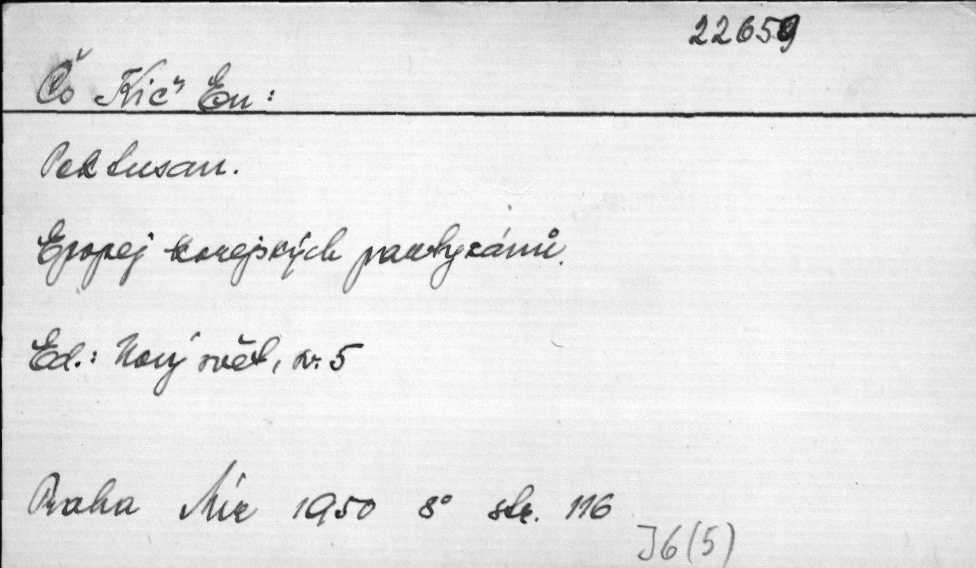 22659
Čo Kič En:
Pektusan.
Epopej korejských partyzánů.
Ed.: Nový svět, sv. 5
Praha Mír 1950 8° str. 116
J6(5)